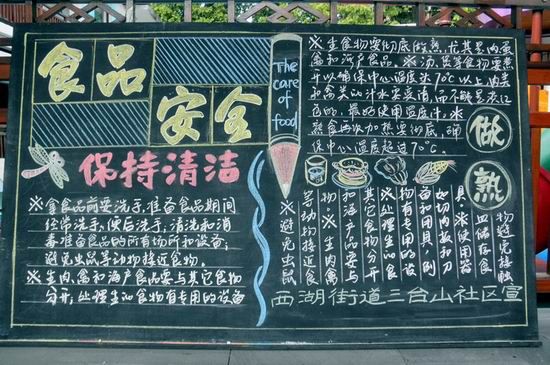 食品
安全
The care of food
保持清洁
※拿食品前要洗手,准备食品期间
经常洗手,便后洗手,清洗和消
毒准备食品的所有场所和设备;
避免虫鼠等动物接近食物。
※生肉、禽和海产食品要与其它食物
分开;处理生的食物有专用的设备
※生食物要彻底的熟,尤其是肉蛋
禽和海产食品。※汤、煲等食物要煮
开以确保中心温度达70℃以上肉类
和禽类的汁水要变清,而不能是淡红
色的,最好使用温度计,※
熟食再次加热要彻底,确
保中心温度超过70℃。
做
熟
※避免虫鼠
等动物接近食
物。※生肉、禽
和海产食品要与
其它食物分开
※处理生的食
物有专用的设
备和用具,例
如切肉板和刀
具。※使用器
皿储存食
物避免接触
西湖街道三台山社区宣